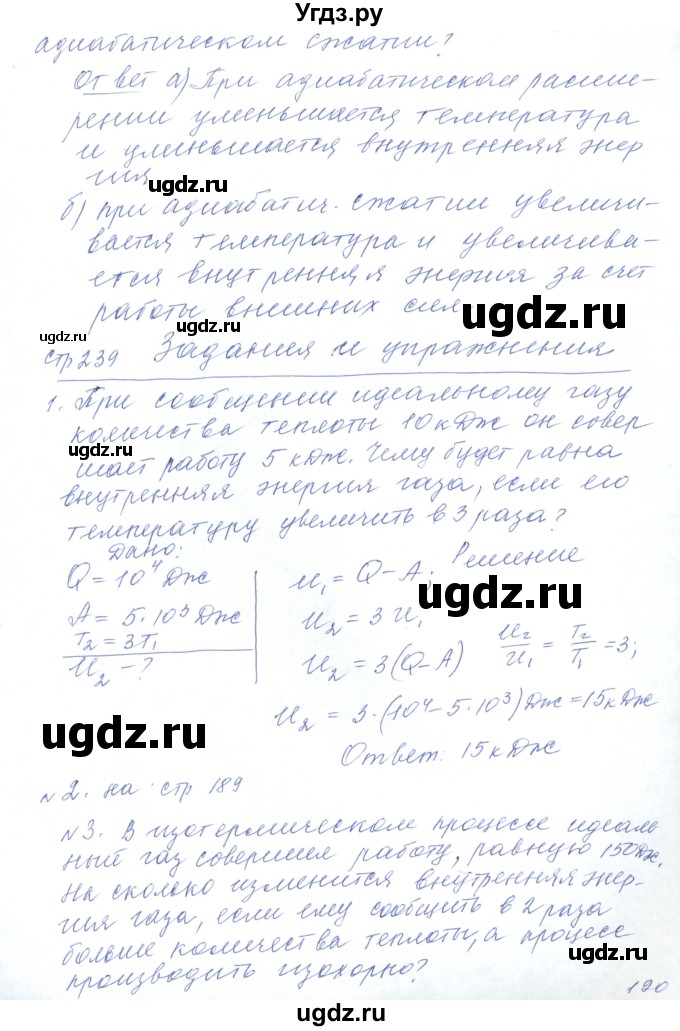 Угдз.ру
адиабатическом сжатии?
Ответ а) При адиабатическом расши-
рении уменьшается температура
и уменьшается внутренняя энер
гия
ugdz.ru
б) при адиабатич. сжатии увеличи-
вается температура и увеличива-
ется внутренняя энергия за счет
работы внешних сил
ugdz.ru
ugdz.ru
ugdz.ru
стр 239 Задания и упражнения
1. При сообщении идеальному газу
количества теплоты 10 кДж он совер
ugdz.ru
шает работу 5 кДж. Чему будет равна
внутренняя энергия газа, если его
температуру увеличить в 3 раза?
Дано: Решение
Q = 10⁴ Дж U₁ = Q – A;
ugdz.ru
A = 5·10³ Дж U₂ = 3U₁
T₂ = 3T₁ U₂ = 3(Q–A) U₂/U₁ = T₂/T₁ = 3;
U₂ – ?
U₂ = 3·(10⁴ – 5·10³) Дж = 15 кДж
ugdz.ru
Ответ: 15 кДж
ugdz.ru
№2. на стр 189
№3. В изотермическом процессе идеаль
ный газ совершил работу, равную 150 Дж.
ugdz.ru
На сколько изменится внутренняя энер-
гия газа, если ему сообщить в 2 раза
ugdz.ru
больше количества теплоты, а процесс
ugdz.ru
производить изохорно?
190
ugdz.ru
ugdz.ru